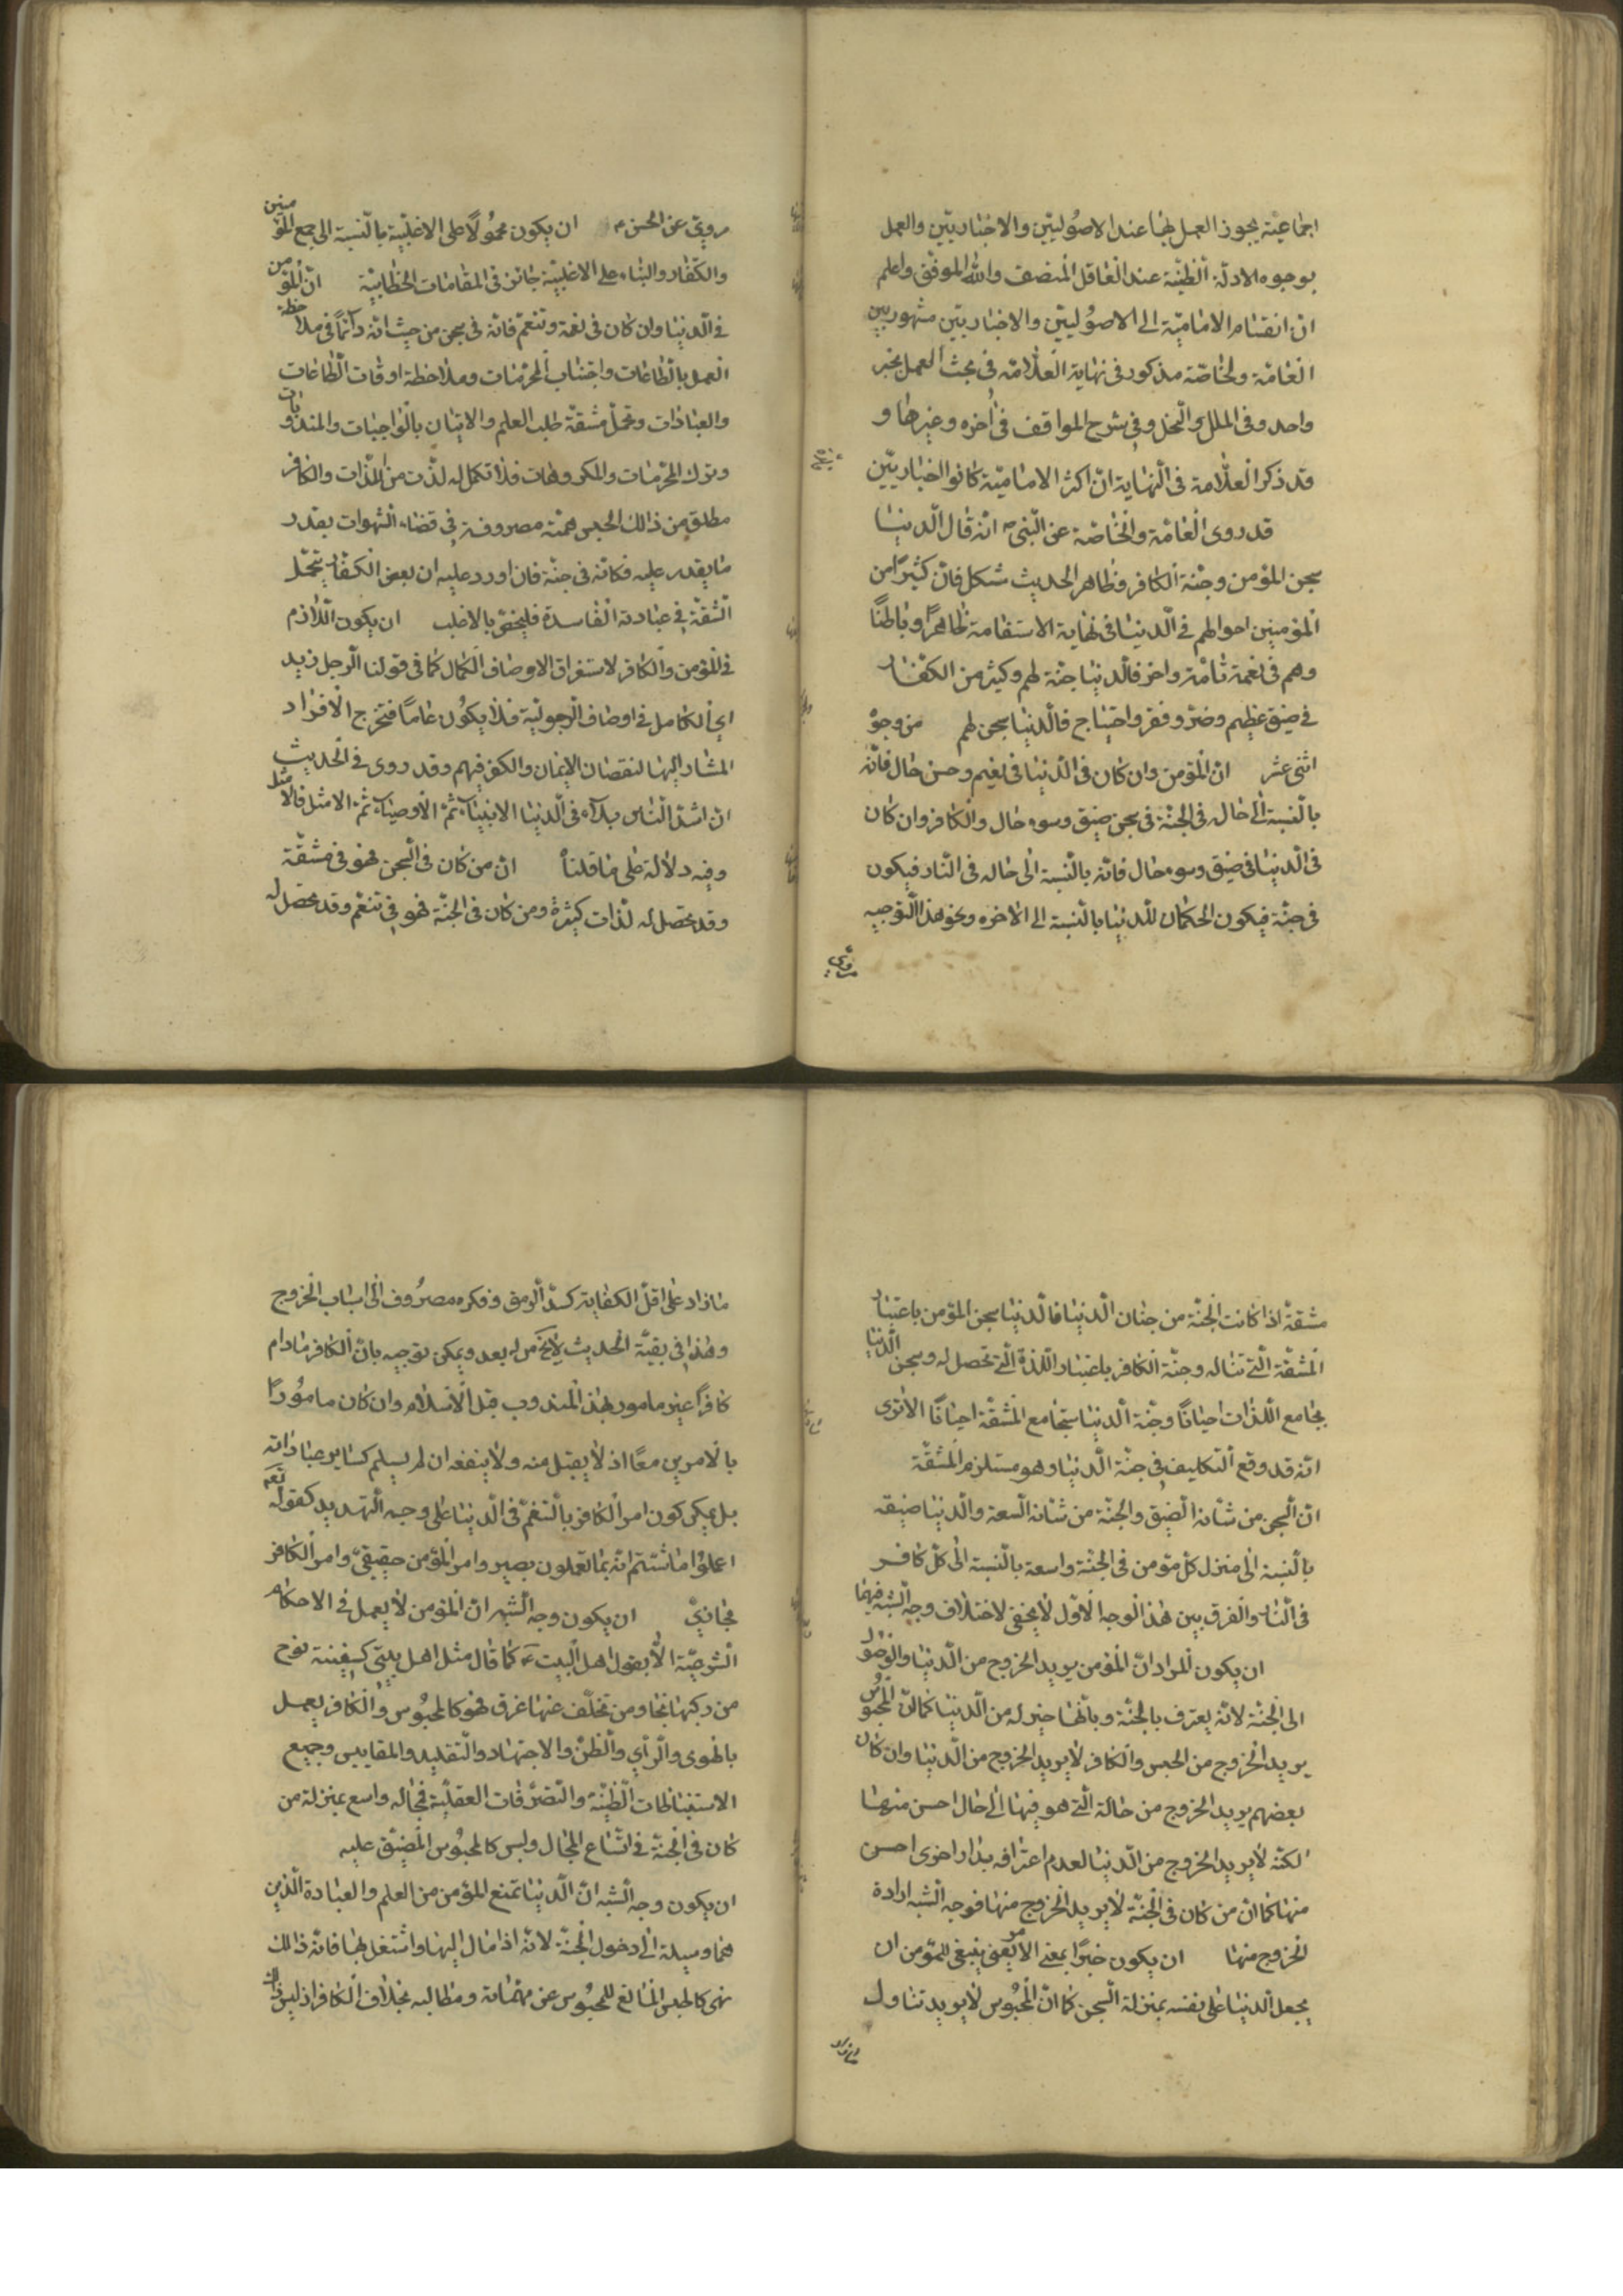 اجماعية يجوز العمل بها عند الاصُوليّين والاخباريّين والعمل
بوجوه الادلّة الظنيّة عند العاقل المنصف والله الموفّق واعلم
انّ انقسام الاماميّة الى الاصُوليّين والاخباريّين مشهور بين
العامّة والخاصّة مذكور في نهاية العلّامة في بحث العمل بخبر
واحد وفي الملل والنحل وفي شرح المواقف في اخره وغيرها و
قد ذكر العلّامة في النهاية انّ اكثر الاماميّة كانوا اخباريّين
قد روى العامّة والخاصّة عن النّبي ص انّه قال الدّنيا
سجن المؤمن وجنّة الكافر وظاهر الحديث مشكل فانّ كثيرًا من
المؤمنين احوالهم في الدّنيا في نهاية الاستقامة ظاهرًا وباطنًا
وهم في نعمة تامّة وافرة فالدّنيا جنّة لهم وكثير من الكفّار
في ضيق عظيم وضرّ وفقر واحتياج فالدّنيا سجن لهم من وجوه
اثنى عشر انّ المؤمن وان كان في الدّنيا في نعيم وحسن حال فانّه
بالنّسبة الى حاله في الجنّة في سجن ضيق وسوء حال والكافر وان كان
في الدّنيا في ضيق وسوء حال فانّه بالنّسبة الى حاله في النّار فيكون
في جنّة فيكون الحكمان للدّنيا بالنّسبة الى الاخره ونحو هذا التّوجيه
مروىّ
مروىّ عن الحسن ع ان يكون محمُولًا على الاغلبيّة بالنّسبة الى جميع المؤمنين
والكفّار والبناء على الاغلبيّة جائز في المقامات الخطابيّة انّ المؤمن
في الدّنيا وان كان في نعمة وتنعّم فانّه في سجن من حيث انّه دائمًا في ملاحظة
العمل بالطّاعات واجتناب المحرّمات وملاحظة اوقات الطّاعات
والعبادات وتحمّل مشقّة طلب العلم والاتيان بالواجبات والمندوبات
وترك المحرّمات والمكروهات فلا تكمل له لذّت من الّلذّات والكافر
مطلق من ذلك الحبس همّته مصروفة في قضاء الشّهوات بقدر
ما يقدر عليه فكانّه في جنّة فان اورد عليه ان بعض الكفّار يتحمّل
المشقّة في عبادته الفاسدة فليخصّ بالاغلب ان يكون اللّازم
في المؤمن والكافر لاستغراق الاوصاف الكمال كما في قولنا الرّجل زيد
اي الكامل في اوصاف الرّجوليّة فلا يكُون عامًا فتخرج الافراد
المشار اليها لنقصان الايمان والكفر فيهم وقد روى في الحديث
انّ اشدّ النّاس بلاء في الدّنيا الانبياء ثمّ الاوصياء ثمّ الامثل فالامثل
وفيه دلالة على ما قلناه انّ من كان في السّجن فهو في مشقّة
وقد تحصّل له لذّات كثيرة ومن كان في الجنّة فهو في تنعّم وقد تحصّل له
مشقّة اذا كانت الجنّة من جنان الدّنيا فالدّنيا سجن المؤمن باعتبار
المشقّة الّتي تناله وجنّة الكافر باعتبار اللّذّة الّتي تحصل له وسجن الدّنيا
يجامع اللّذّات احيانًا وجنّة الدّنيا تجامع المشقّة احيانًا الا ترى
انّه قد وقع التّكليف في جنّة الدّنيا وهو مستلزم المشقّة
انّ السّجن من شانه الضّيق والجنّة من شانه السّعة والدّنيا ضيّقه
بالنّسبة الى منزل كلّ مؤمن في الجنّة واسعة بالنّسبة الى كلّ كافر
في النّار والفرق بين هذا الوجه الاوّل لا يخفى لاختلاف وجه الشّبه فيهما
ان يكون المراد انّ المؤمن يريد الخروج من الدّنيا والوصُول
الى الجنّة لانّه يعترف بالجنّة وبانّها خير له من الدّنيا كما انّ المحبُوس
يريد الخروج من الحبس والكافر لا يريد الخروج من الدّنيا وان كان
بعضهم يريد الخروج من حالة الّتي هو فيها الى حال احسن منها
لكنّه لا يريد الخروج من الدّنيا لعدم اعترافه بدار اخرى احسن
منها كما انّ من كان في الجنّة لا يريد الخروج منها فوجه الشّبه ارادة
الخروج منها ان يكون خبرًا بمعنى الامر يعنى ينبغى للمؤمن ان
يجعل الدّنيا على نفسه بمنزلة السّجن كما انّ المحبُوس لا يريد تناول
ما زاد
ما زاد على اقلّ الكفاية كسدّ الرّمق وفكره مصرُوف الى اسباب الخروج
وهذا في بقيّة الحديث لا يخ من بعد ويمكن توجيه بانّ الكافر مادام
كافرًا غير مامور بهذا المندوب قبل الاسلام وان كان مامُورًا
بالامرين معًا اذ لا يقبل منه ولا ينفعه ان لم يسلم كساير عباداته
بل يمكن كون امر الكافر بالتنعّم في الدّنيا على وجه التّهديد كقوله تعم
اعملوا ما شئتم انّه بما تعملون بصير وامر المؤمن حقيقىّ وامر الكافر
مجازىّ ان يكون وجه الشّبه انّ المؤمن لا يعمل في الاحكام
الشّرعيّة الّا بقول اهل البيت ع كما قال مثل اهل بيتي كسفينة نوح
من ركبها نجا ومن تخلّف عنها غرق فهو كالمحبُوس والكافر يعمل
بالهوى والرّأي والظنّ والاجتهاد والتّقليد والمقاييس وجميع
الاستنباطات الظّنيّة والتّصرّفات العقليّة فمجاله واسع بمنزلة من
كان في الجنّة في اتّساع المجال وليس كالمحبُوس المضيّق عليه
ان يكون وجه الشّبه انّ الدّنيا تمنع المؤمن من العلم والعبادة الّذين
هما وسيلة الى دخول الجنّة لانّه اذا مال اليها واشتغل بها فاته ذالك
فهى كالحبس المانع للمحبُوس عن مهمّاته ومطالبه بخلاف الكافر اذ ليس ذلك